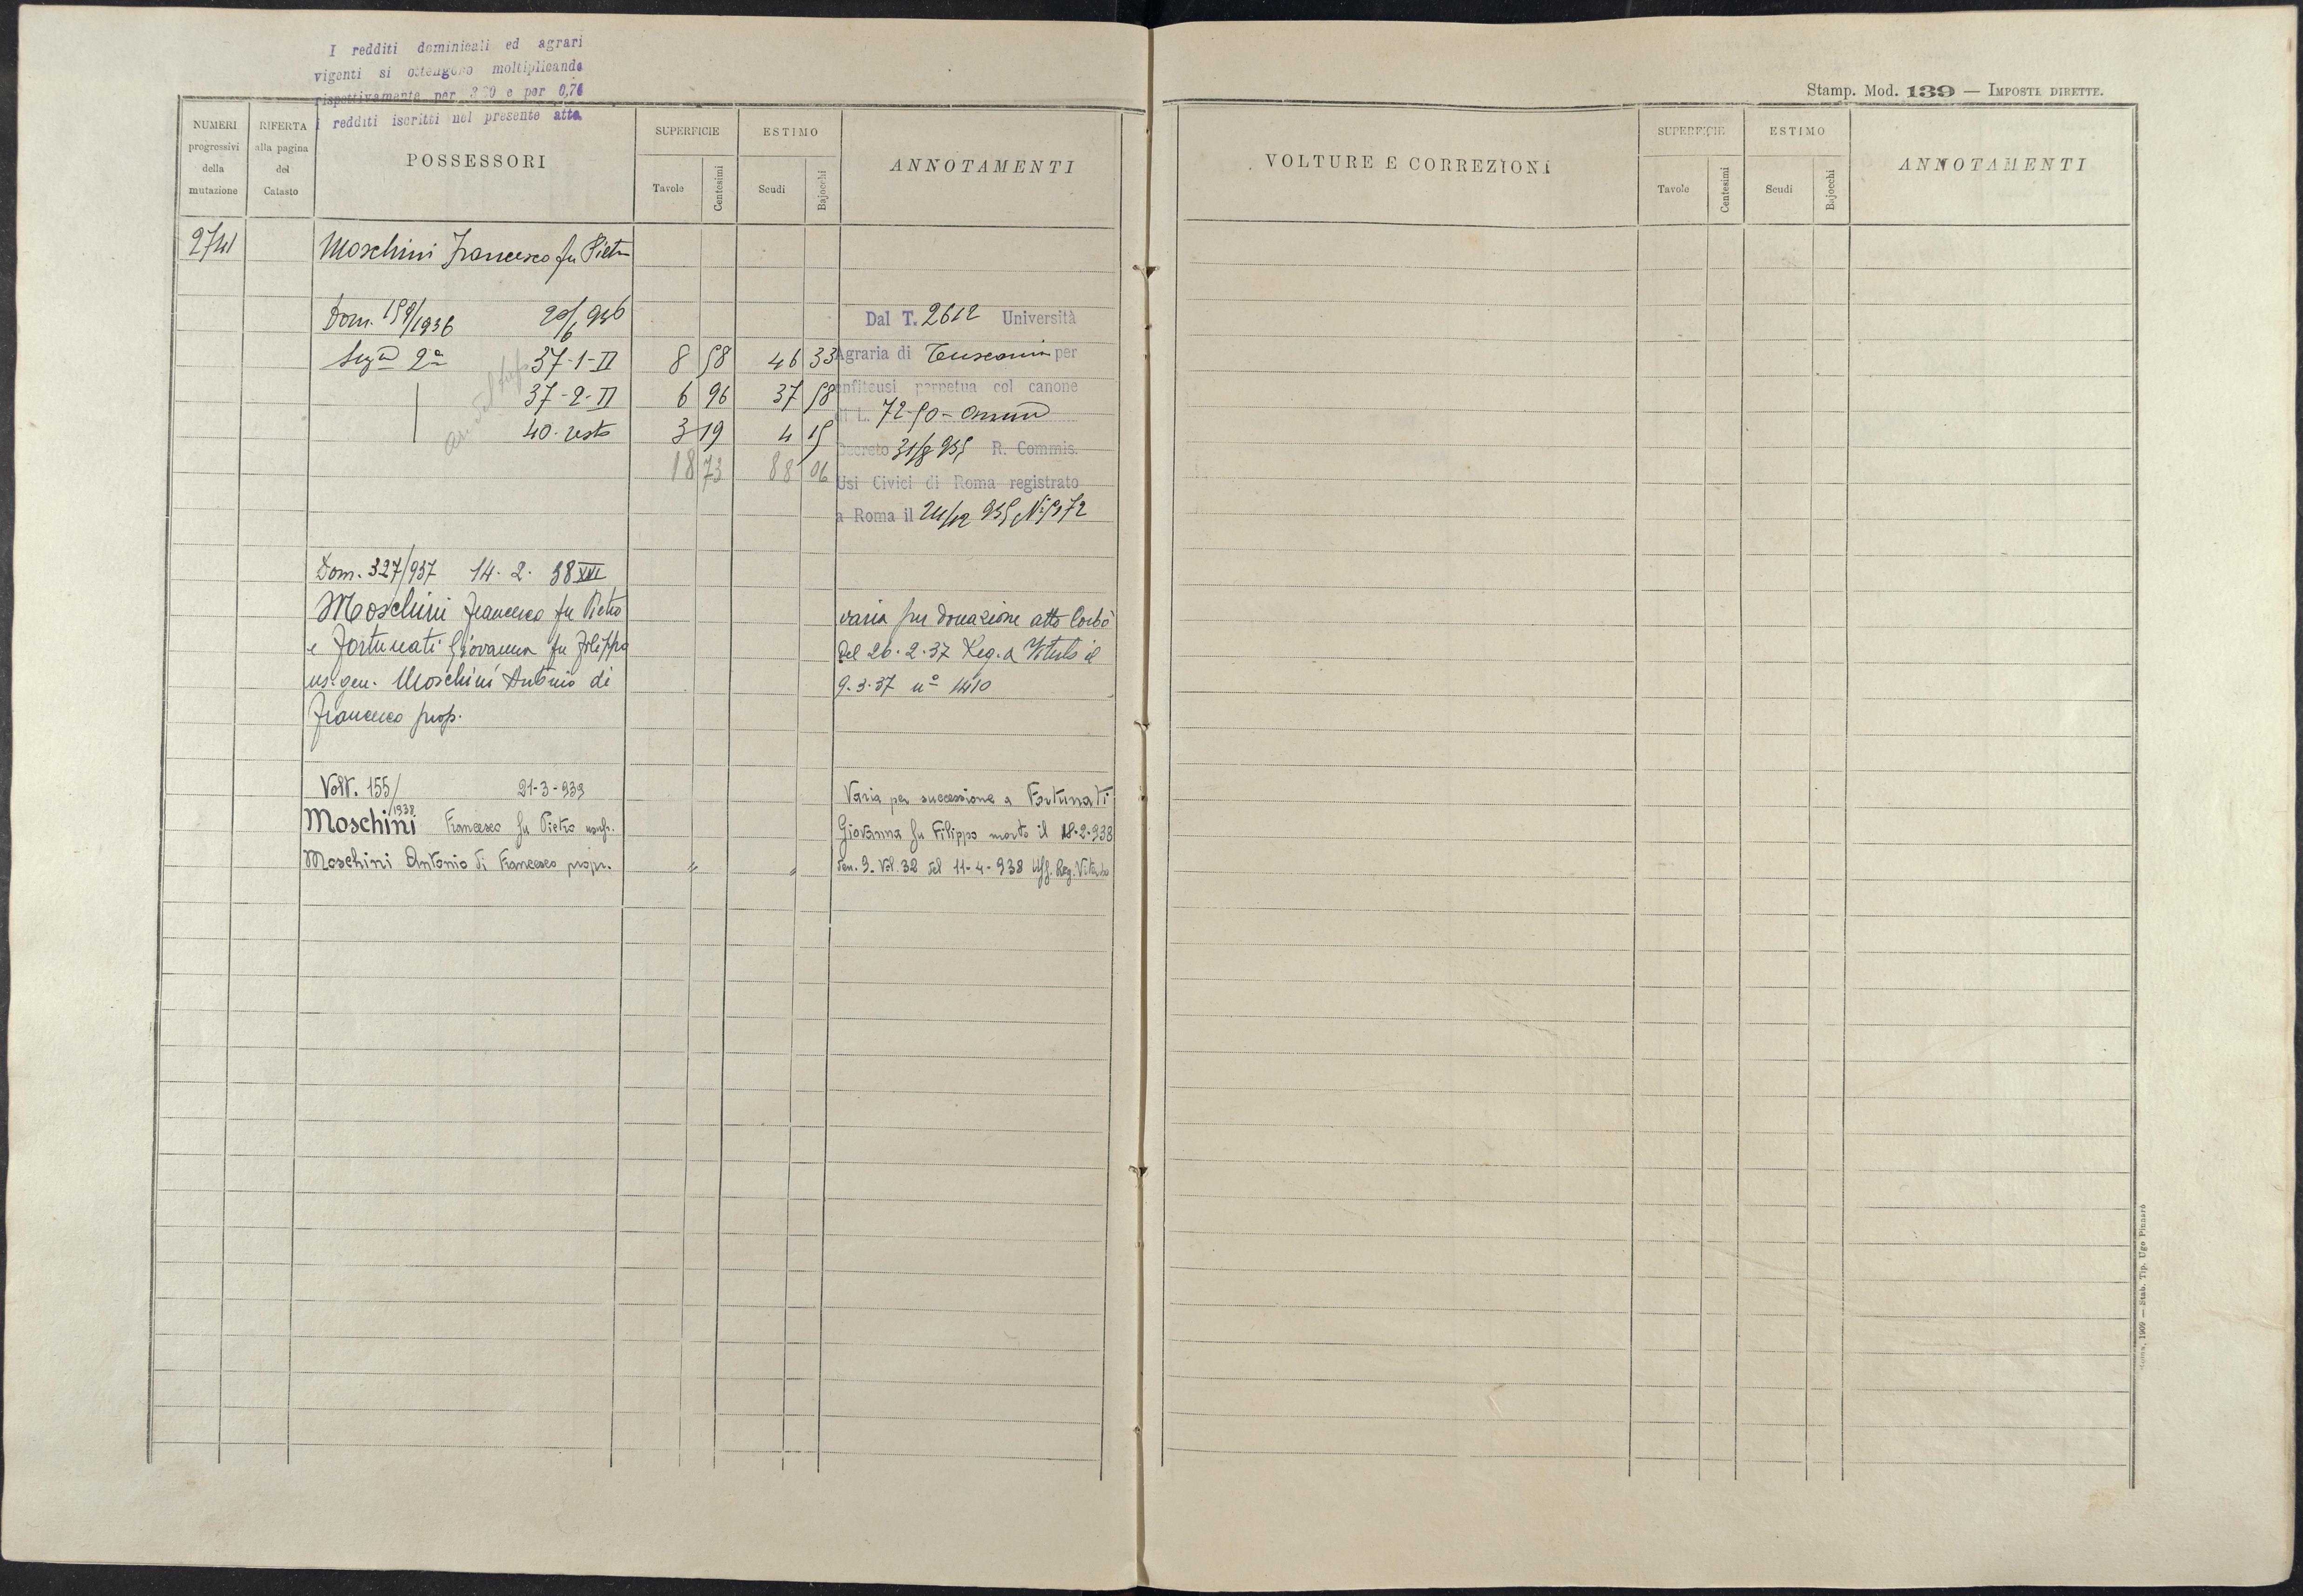 I redditi dominicali ed agrari
vigenti si ottengono moltiplicando
rispettivamente per e per 0,74
i redditi iscritti nel presente atto.
NUMERI progressivi della mutazione
RIFERTA alla pagina del Catasto
POSSESSORI
SUPERFICIE
Tavole
Centesimi
ESTIMO
Scudi
Bajocchi
ANNOTAMENTI
2741
Moschini Francesco fu Pietro
Dom. 159/1936 20/6 936
Dal T. 2612 Università
Sezne 2a 37-1-II 8 58 46 33
Agraria di Tuscania per
37-2-II 6 96 37 58
enfiteusi perpetua col canone
di L. 72-50- annuo
40. resto 3 19 4 15
Decreto 31/8 935 R. Commis.
18 73 88 06
Usi Civici di Roma registrato
a Roma il 24/12 935
Dom. 327/937 14. 2. 38 XVI
Moschini Francesco fu Pietro
varia per donazione atto
e Fortunati Giovanna fu Filippo
del 26.2.37 Reg. a Viterbo il
us. gen. Moschini Antonio di
9.3.37 n° 1410
Francesco prop.
Volt. 155/1938 21-3-939
Varia per successione a Fortunati
Moschini Francesco fu Pietro usuf.
Giovanna fu Filippo morta il 18-2-938
Moschini Antonio di Francesco propr. " "
den. 9. Vol. 32 del 11-4-938 Uff. Reg. Viterbo
Stamp. Mod. 139 — IMPOSTE DIRETTE.
VOLTURE E CORREZIONI
SUPERFICIE
Tavole
Centesimi
ESTIMO
Scudi
Bajocchi
ANNOTAMENTI
Roma, 1909 — Stab. Tip. Ugo Pinnarò